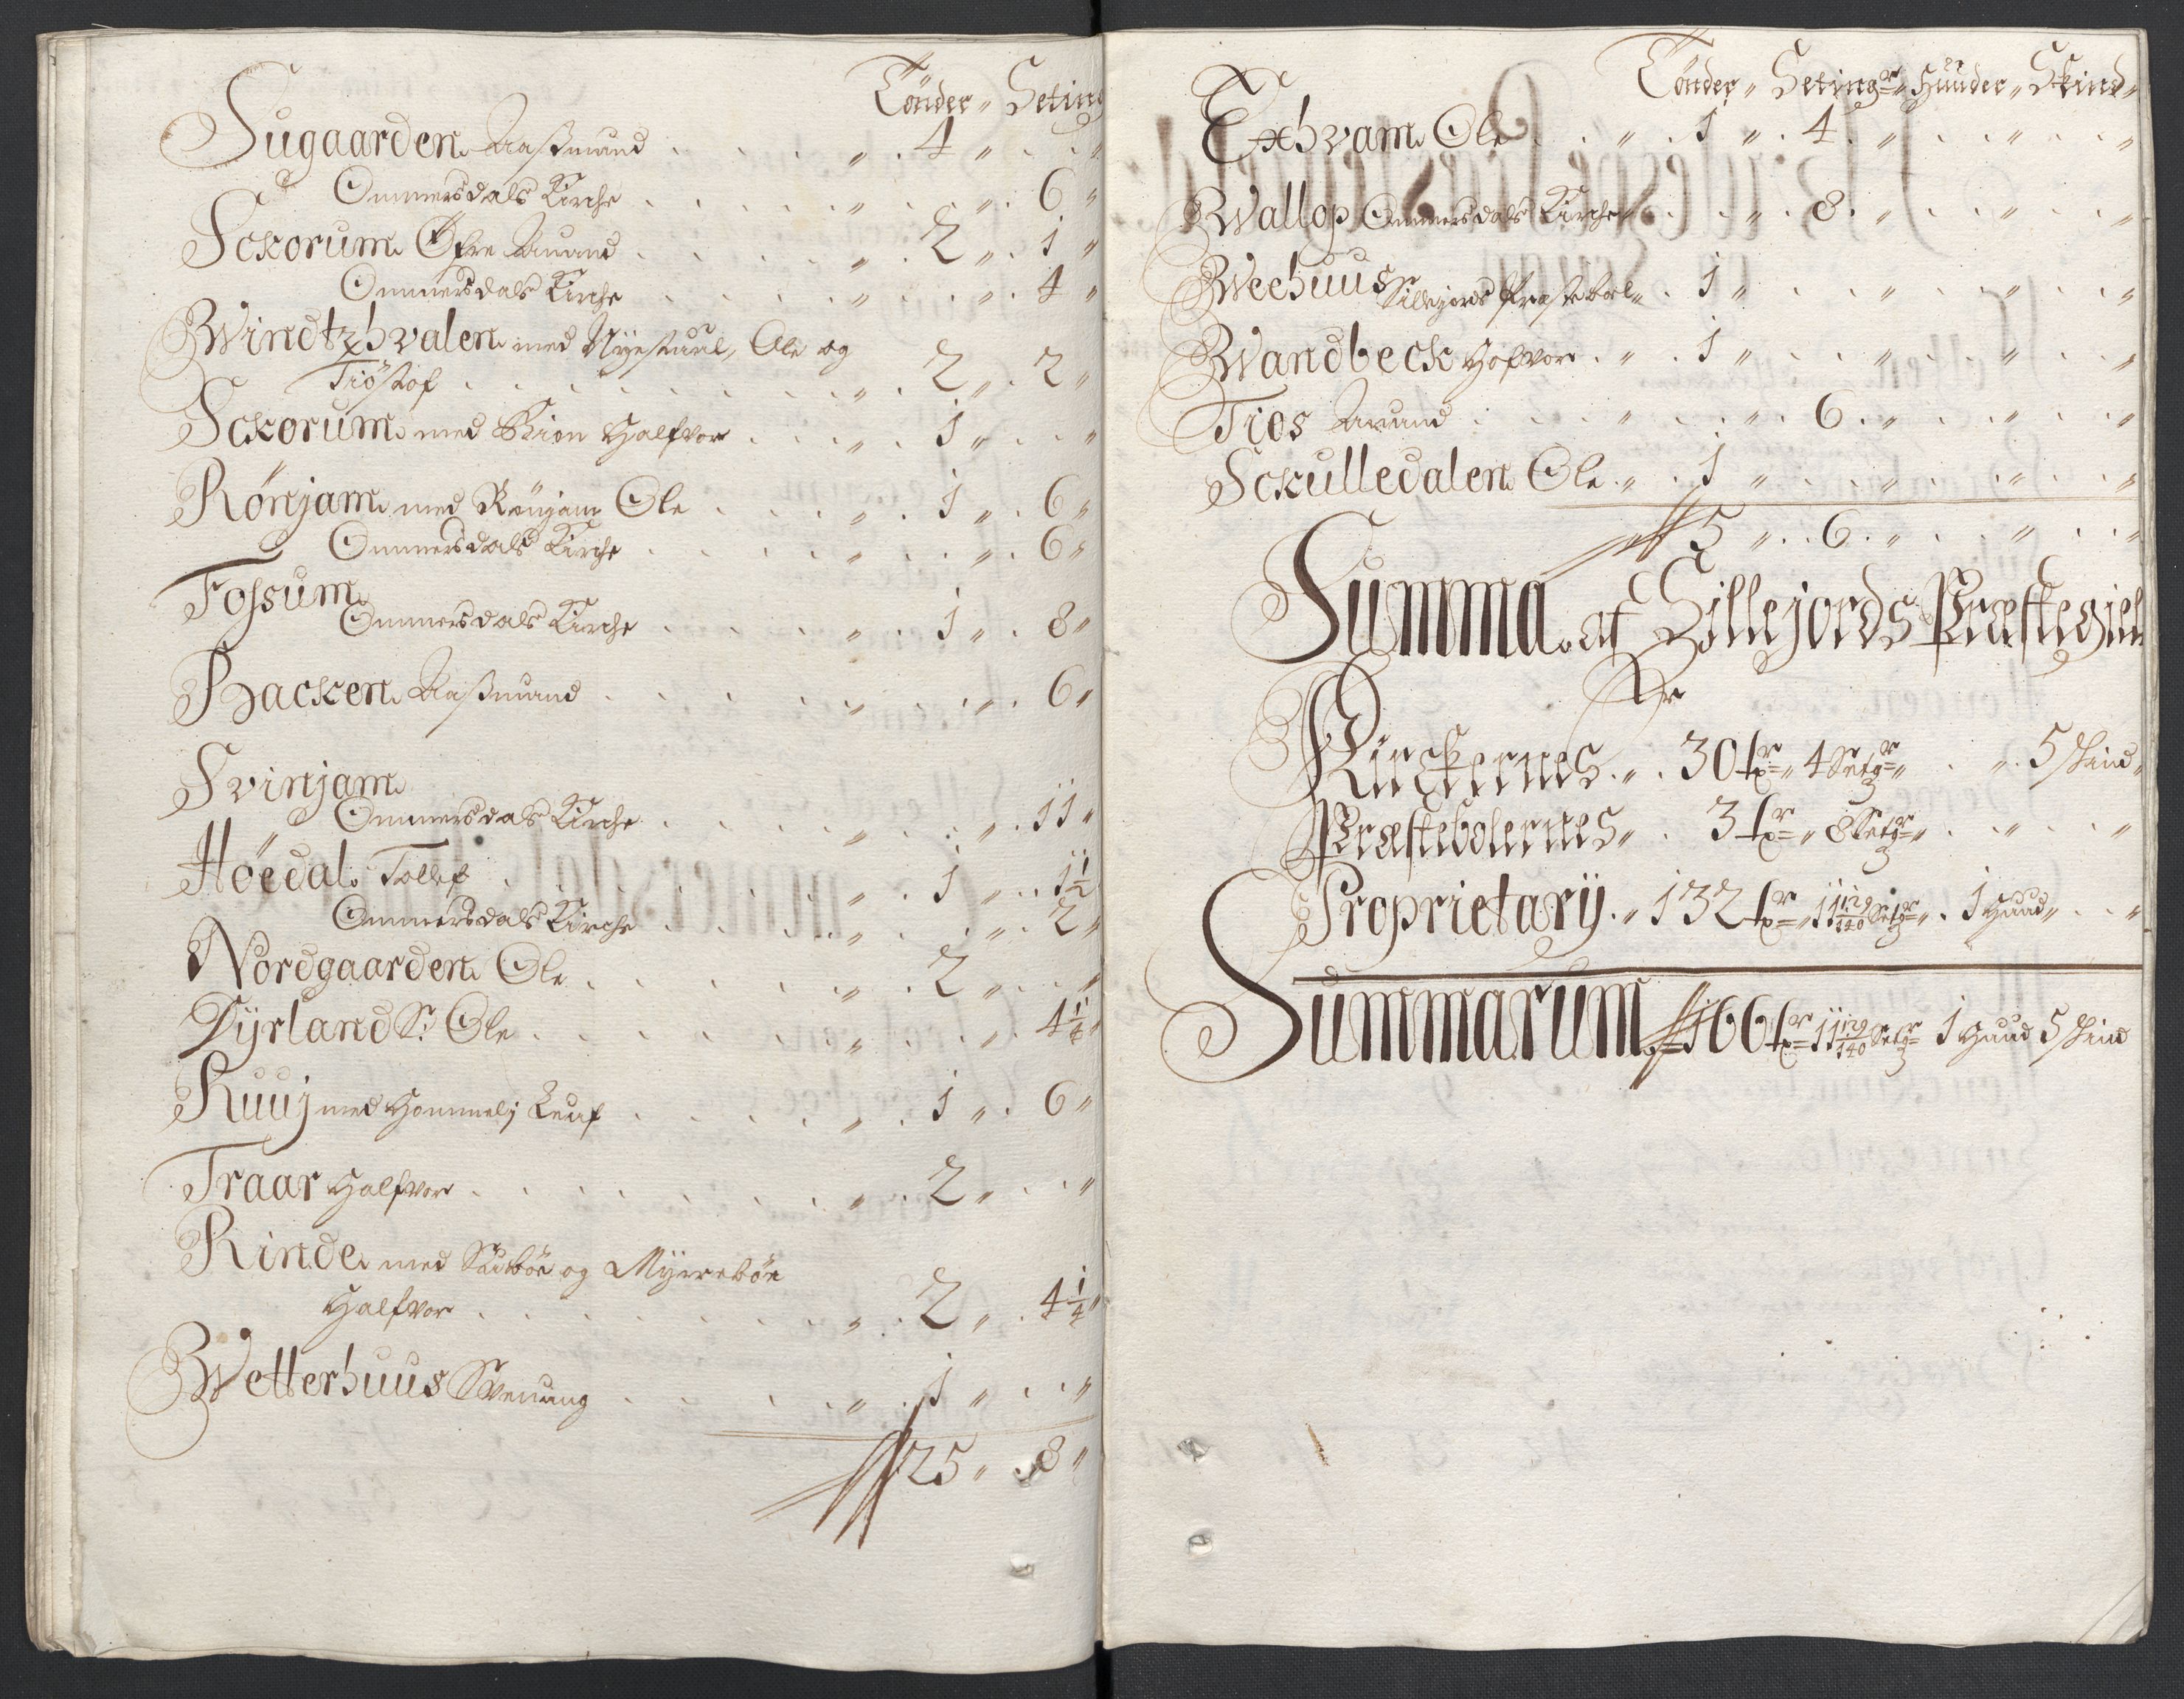 Tönder „ Seting
Sugaarden Aaßmund . . . „ . 4 „ . . „
Ommersdals Kirche . . . . „ . . „ . 6 „
Sckorum Øfre Anund . . . . „ . 2 „ . 1 „
Ommersdals Kirche . . . . „ . . „ . 4 „
Windtzhvalen med Nÿestuul, Ole og
Tiöstof . . . . . . „ . 2 „ . 2 „
Sckorum med Kion Halfvor . . . „ . 1 „ . . „
Rönjam med Rönjom Ole . . . „ . 1 „ . 6 „
Ommersdals Kirche . . . . „ . . „ . 6 „
Fossum
Ommersdals Kirche . . . . „ . 1 „ . 8 „
Backen Aaßmund . . . . „ . . „ . 6 „
Svinjam
Ommersdals Kirche . . . . „ . . „ . 11 „
Höedal Tollef . . . . „ . 1 „ . . 1 1/2
Ommersdals Kirche . . . . „ . . „ . 2 „
Nordgaarden Ole . . . . „ . 2 „ . . „
Dÿrland S: Ole . . . . „ . . „ . 4 1/4 „
Ruuj med Hommelj Leuf . . . . „ . 1 „ . 6 „
Traar Halfvor . . . . „ . 2 „ . . „
Rinde med Sudböe og Mÿrebön
Halfvor . . . . „ . 2 „ . 4 1/4 „
Wetterhuus Svenung . . . . „ . 1 „ . . „
25 „ . 8 „
Tönder „ Setingr „ Huuder „ Skind „
Exhvam Ole . . „ . 1 „ . 4 . „ . . „ . . „
Wallop Ommersdals Kirche „ . . „ . 8 . „ . . „ . . „
Weehuus Sillejords Præstebol „ . 1 „ . . „ . . „ . . „
Wandbeck Hafvor . „ . 1 „ . . „ . . „ . . „
Tios Anund . . . „ . . „ . 6 . „ . . „ . . „
Sckulledalen Ole . „ . 1 „ . . „ . . „ . . „
5 „ . . 6 . „ . . „ . . „
Summa af Sillejords Præstegiel
Er
Kirckernes . „ . 30 tr „ 4 Setgr „ . . „ . 5 skind „
Præstebolernes „ . 3 tr „ 8 Setgr „ . . „ . . „
Proprietarÿ . „ 132 tr „ 11 129/140 Setgr „ . 1 Huud „ . . „
Summarum 166 tr 11 129/140 Setgr 1 Huud 5 skind